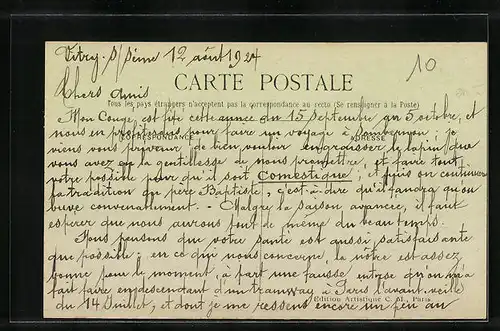 Vitry-s/Seine 12 août 1924
10
Chers Amis
CARTE POSTALE
Tous les pays étrangers n'acceptent pas la correspondance au recto (Se renseigner à la Poste)
Mon Congé est fixé cette année du 15 Septembre au 5 octobre, et
nous en profiterons pour faire un voyage à Sombernon; je
CORRESPONDANCE
ADRESSE
viens vous prévenir de bien vouloir engraisser le lapin que
vous avez eu la gentillesse de nous promettre, et faire tout
votre possible pour qu'il soit Comestigne; et puis on continuera
la tradition du père Baptiste, c'est-à-dire qu'il faudra qu'on
buve convenablement. - Malgré la saison avancée, il faut
espérer que nous aurons tout de même du beau temps.
Nous pensons que votre santé est aussi satisfaisante
que possible; en ce qui nous concerne, la nôtre est assez
bonne pour le moment, à part une fausse entorse qu'on m'a
fait faire en descendant d'un tramway à Paris l'avant-veille
du 14 Juillet, et dont je me ressens encore un peu au
Edition Artistique C. M., Paris